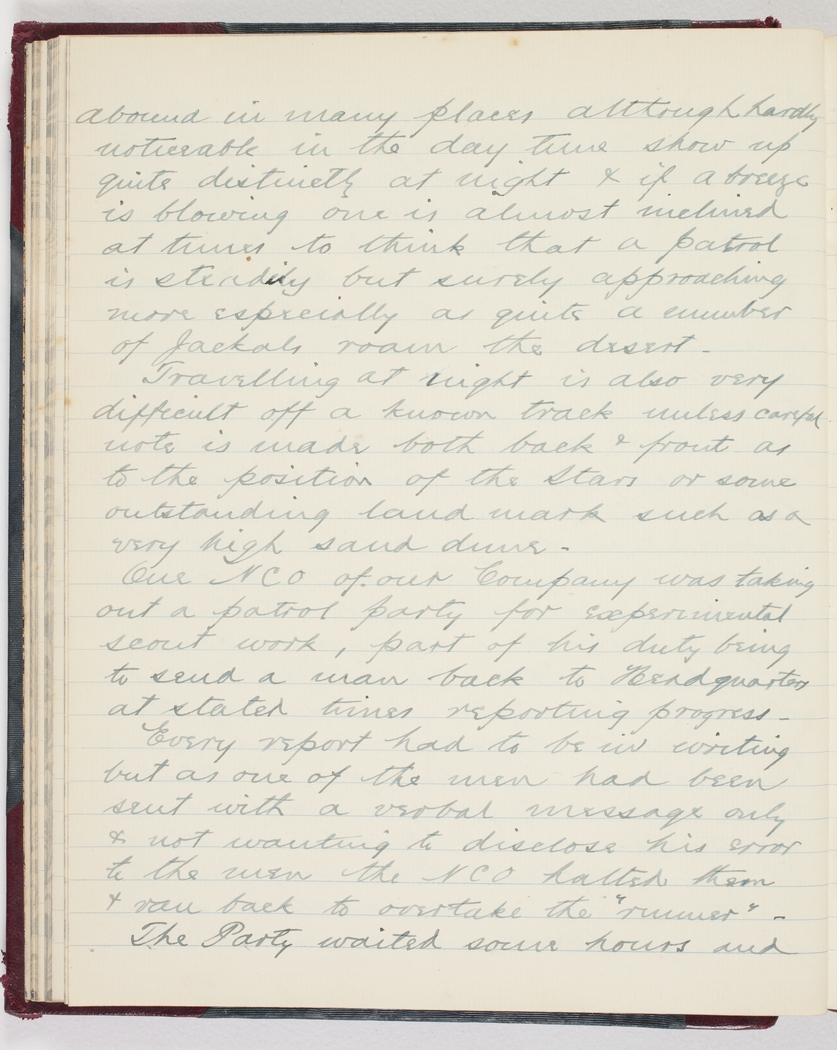 abound in many places although hardly
noticeable in the day time show up
quite distinctly at night & if a breeze
is blowing one is almost inclined
at times to think that a patrol
is steadily but surely approaching
more especially as quite a number
of Jackals roam the desert -
Travelling at night is also very
difficult off a known track unless careful
note is made both back & front as
to the position of the Stars or some
outstanding land mark such as a
very high sand dune -
One NCO of our Company was taking
out a patrol party for experimental
scout work, part of his duty being
to send a man back to Headquarters
at stated times reporting progress -
Every report had to be in writing
but as one of the men had been
sent with a verbal message only
& not wanting to disclose his error
to the men the NCO halted them
& ran back to overtake the "runner" -
The Party waited some hours and